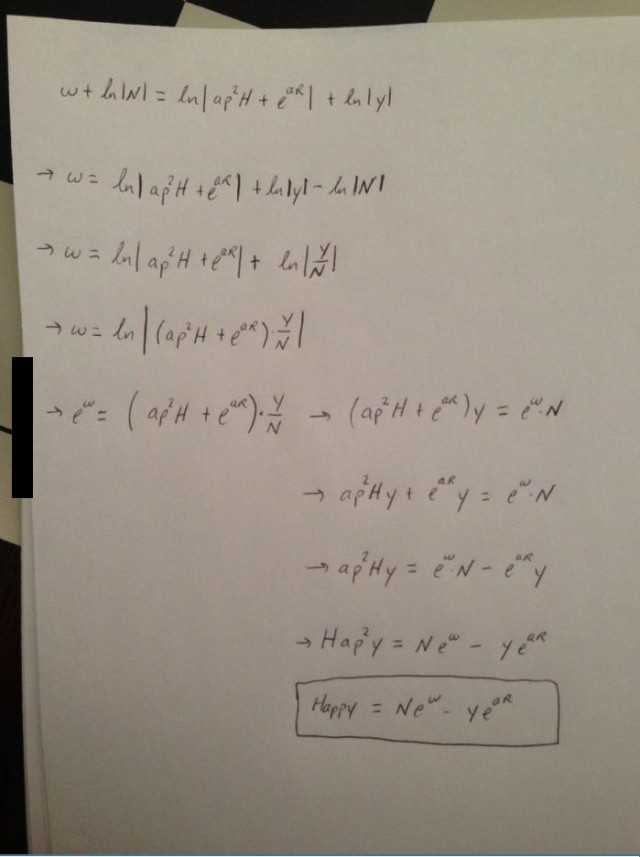 w + ln|N| = ln|ap²H + e^{aR}| + ln|y|
→ w = ln|ap²H + e^{aR}| + ln|y| - ln|N|
→ w = ln|ap²H + e^{aR}| + ln|Y/N|
→ w = ln|(ap²H + e^{aR})·Y/N|
→ e^w = (ap²H + e^{aR})·Y/N → (ap²H + e^{aR})y = e^w·N
→ ap²Hy + e^{aR}y = e^w·N
→ ap²Hy = e^w·N - e^{aR}y
→ Hap²y = Ne^w - ye^{aR}
Happy = Ne^w - ye^{aR}